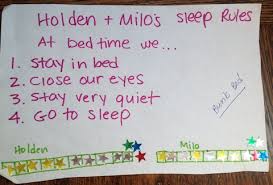 Holden + Milo's Sleep Rules
At bedtime we...
1. Stay in bed
2. Close our eyes
3. Stay very quiet
4. Go to sleep
Bunk Bed
Holden
Milo